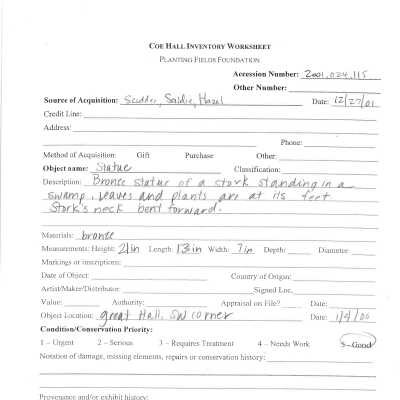 COE HALL INVENTORY WORKSHEET
PLANTING FIELDS FOUNDATION
Accession Number: 2001.024.115
Other Number:
Source of Acquisition: Scudder, Saldie, Hazel Date: 12/27/01
Credit Line:
Address:
Phone:
Method of Acquisition: Gift Purchase Other:
Object name: Statue Classification:
Description: Bronze statue of a stork standing in a
swamp, leaves and plants are at its feet
Stork's neck bent forward.
Materials: bronze
Measurements: Height: 21in Length: 13in Width: 7in Depth: Diameter:
Markings or inscriptions:
Date of Object: Country of Origin:
Artist/Maker/Distributor: Signed Loc.
Value: Authority: Appraisal on File? Date:
Object Location: great Hall, SW corner Date: 1/4/00
Condition/Conservation Priority:
1 – Urgent 2 – Serious 3 – Requires Treatment 4 – Needs Work 5 – Good
Notation of damage, missing elements, repairs or conservation history:
Provenance and/or exhibit history: